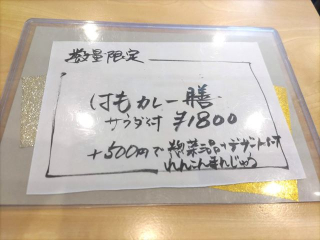 数量限定
はもカレー膳
サラダ付 ¥1800
+500円で 惣菜三品+デザート付
れんこんまんじゅう